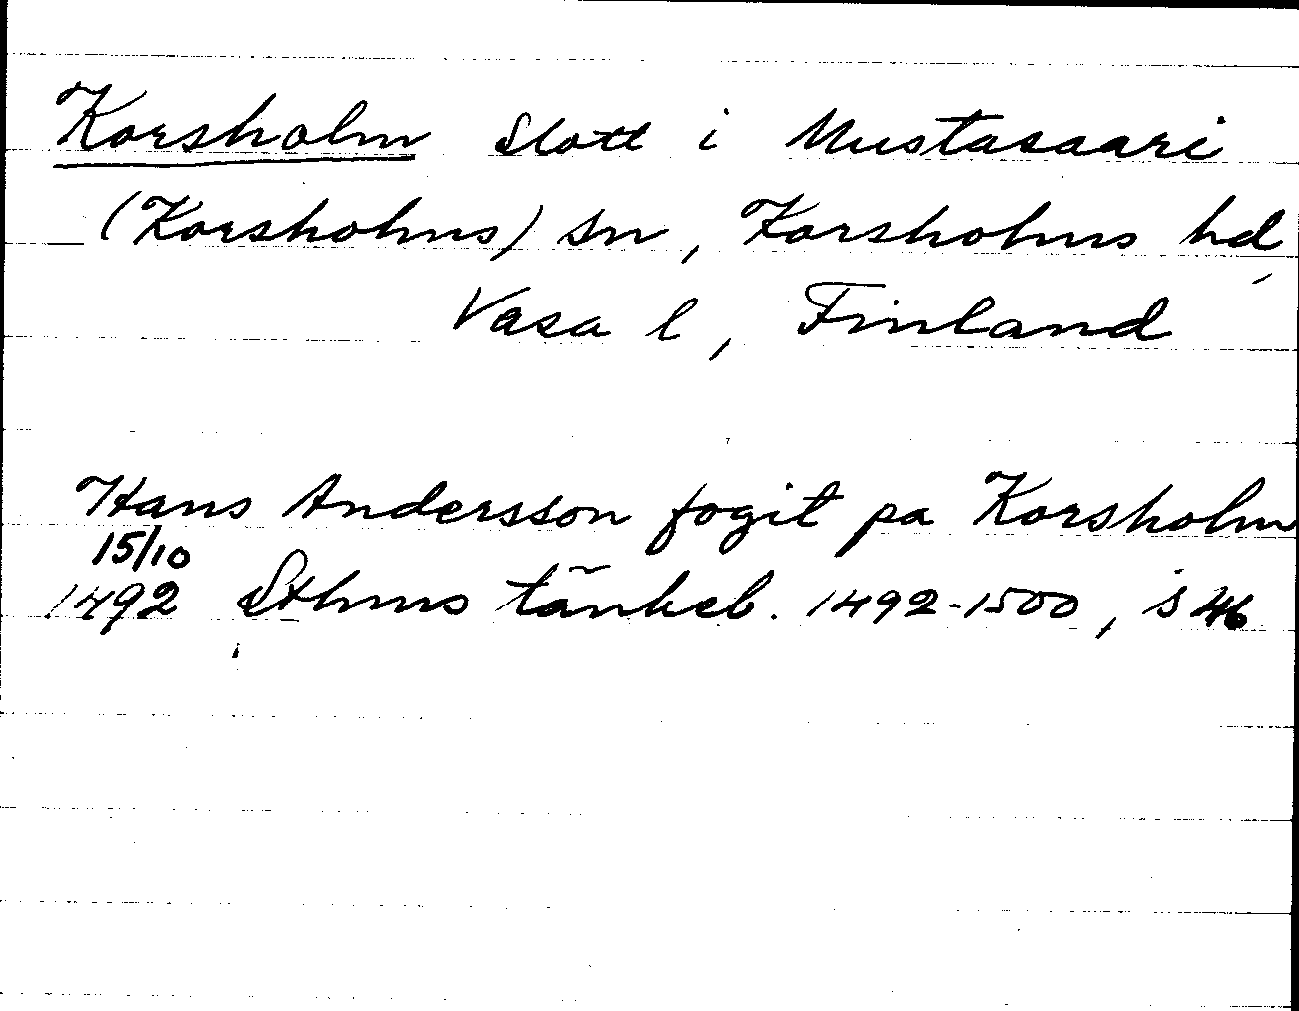 Korsholm slott i Mustasaari
(Korsholms) sn, Korsholms hd,
Vasa l, Finland
Hans Andersson fogit pa Korsholm
15/10
1492 Sthms tänkeb. 1492-1500, s 46